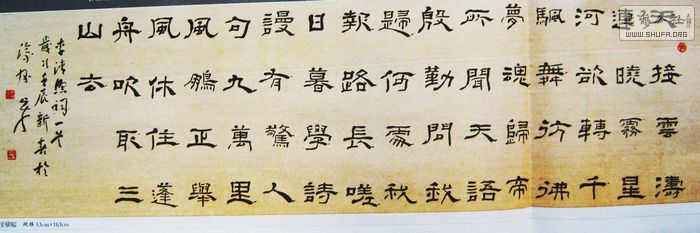 天接雲濤
連曉霧星
河欲轉千
颿舞彷彿
夢魂歸帝
所聞天語
殷勤問我
歸何處我
報路長嗟
日暮學詩
謾有驚人
句九萬里
風鵬正舉
風休住蓬
舟吹取三
山去
李清照詞一首
歲次壬辰新春於
橫幅 規格 53cm×163cm
WWW.SHUFA.ORG